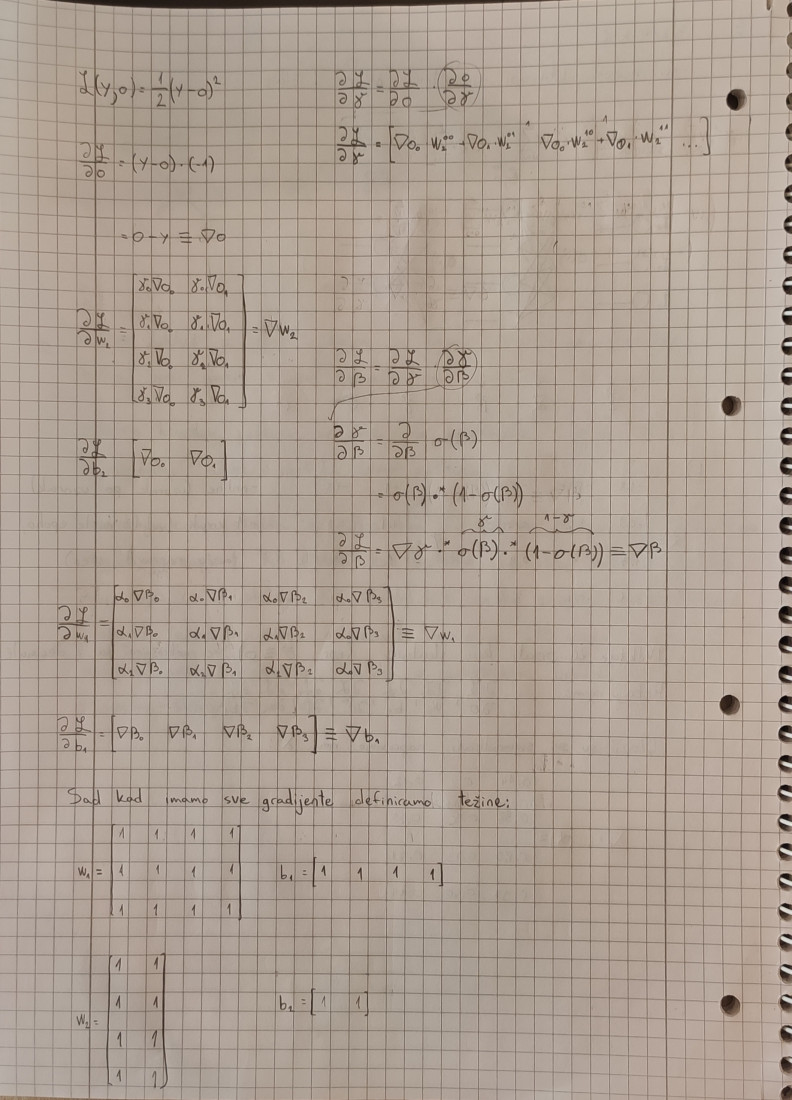 ℒ(y,o) = 1/2 (y-o)²
∂ℒ/∂o = (y-o)·(-1)
= o-y ≡ ∇o
∂ℒ/∂w₂ = [γ₀∇o₀ γ₀∇o₁
γ₁∇o₀ γ₁∇o₁
γ₂∇o₀ γ₂∇o₁
γ₃∇o₀ γ₃∇o₁] = ∇w₂
∂ℒ/∂b₂ [∇o₀ ∇o₁]
∂ℒ/∂γ = ∂ℒ/∂o · ∂o/∂γ
∂ℒ/∂γ = [∇o₀·w₂⁰⁰+∇o₁·w₂⁰¹ ∇o₀·w₂¹⁰+∇o₁·w₂¹¹ ...]
∂ℒ/∂β = ∂ℒ/∂γ · ∂γ/∂β
∂γ/∂β = ∂/∂β σ(β)
= σ(β).*(1-σ(β))
γ 1-γ
∂ℒ/∂β = ∇γ.* σ(β).* (1-σ(β)) ≡ ∇β
∂ℒ/∂w₁ = [α₀∇β₀ α₀∇β₁ α₀∇β₂ α₀∇β₃
α₁∇β₀ α₁∇β₁ α₁∇β₂ α₁∇β₃
α₂∇β₀ α₂∇β₁ α₂∇β₂ α₂∇β₃] ≡ ∇w₁
∂ℒ/∂b₁ = [∇β₀ ∇β₁ ∇β₂ ∇β₃] ≡ ∇b₁
Sad kad imamo sve gradijente definiramo težine:
w₁ = [1 1 1 1
1 1 1 1
1 1 1 1]
b₁ = [1 1 1 1]
w₂ = [1 1
1 1
1 1
1 1]
b₂ = [1 1]